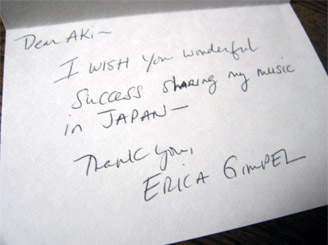 Dear Aki—
I WISH You wonderful
Success sharing my music
in JAPAN—
Thank you,
ERICA GIMPEL